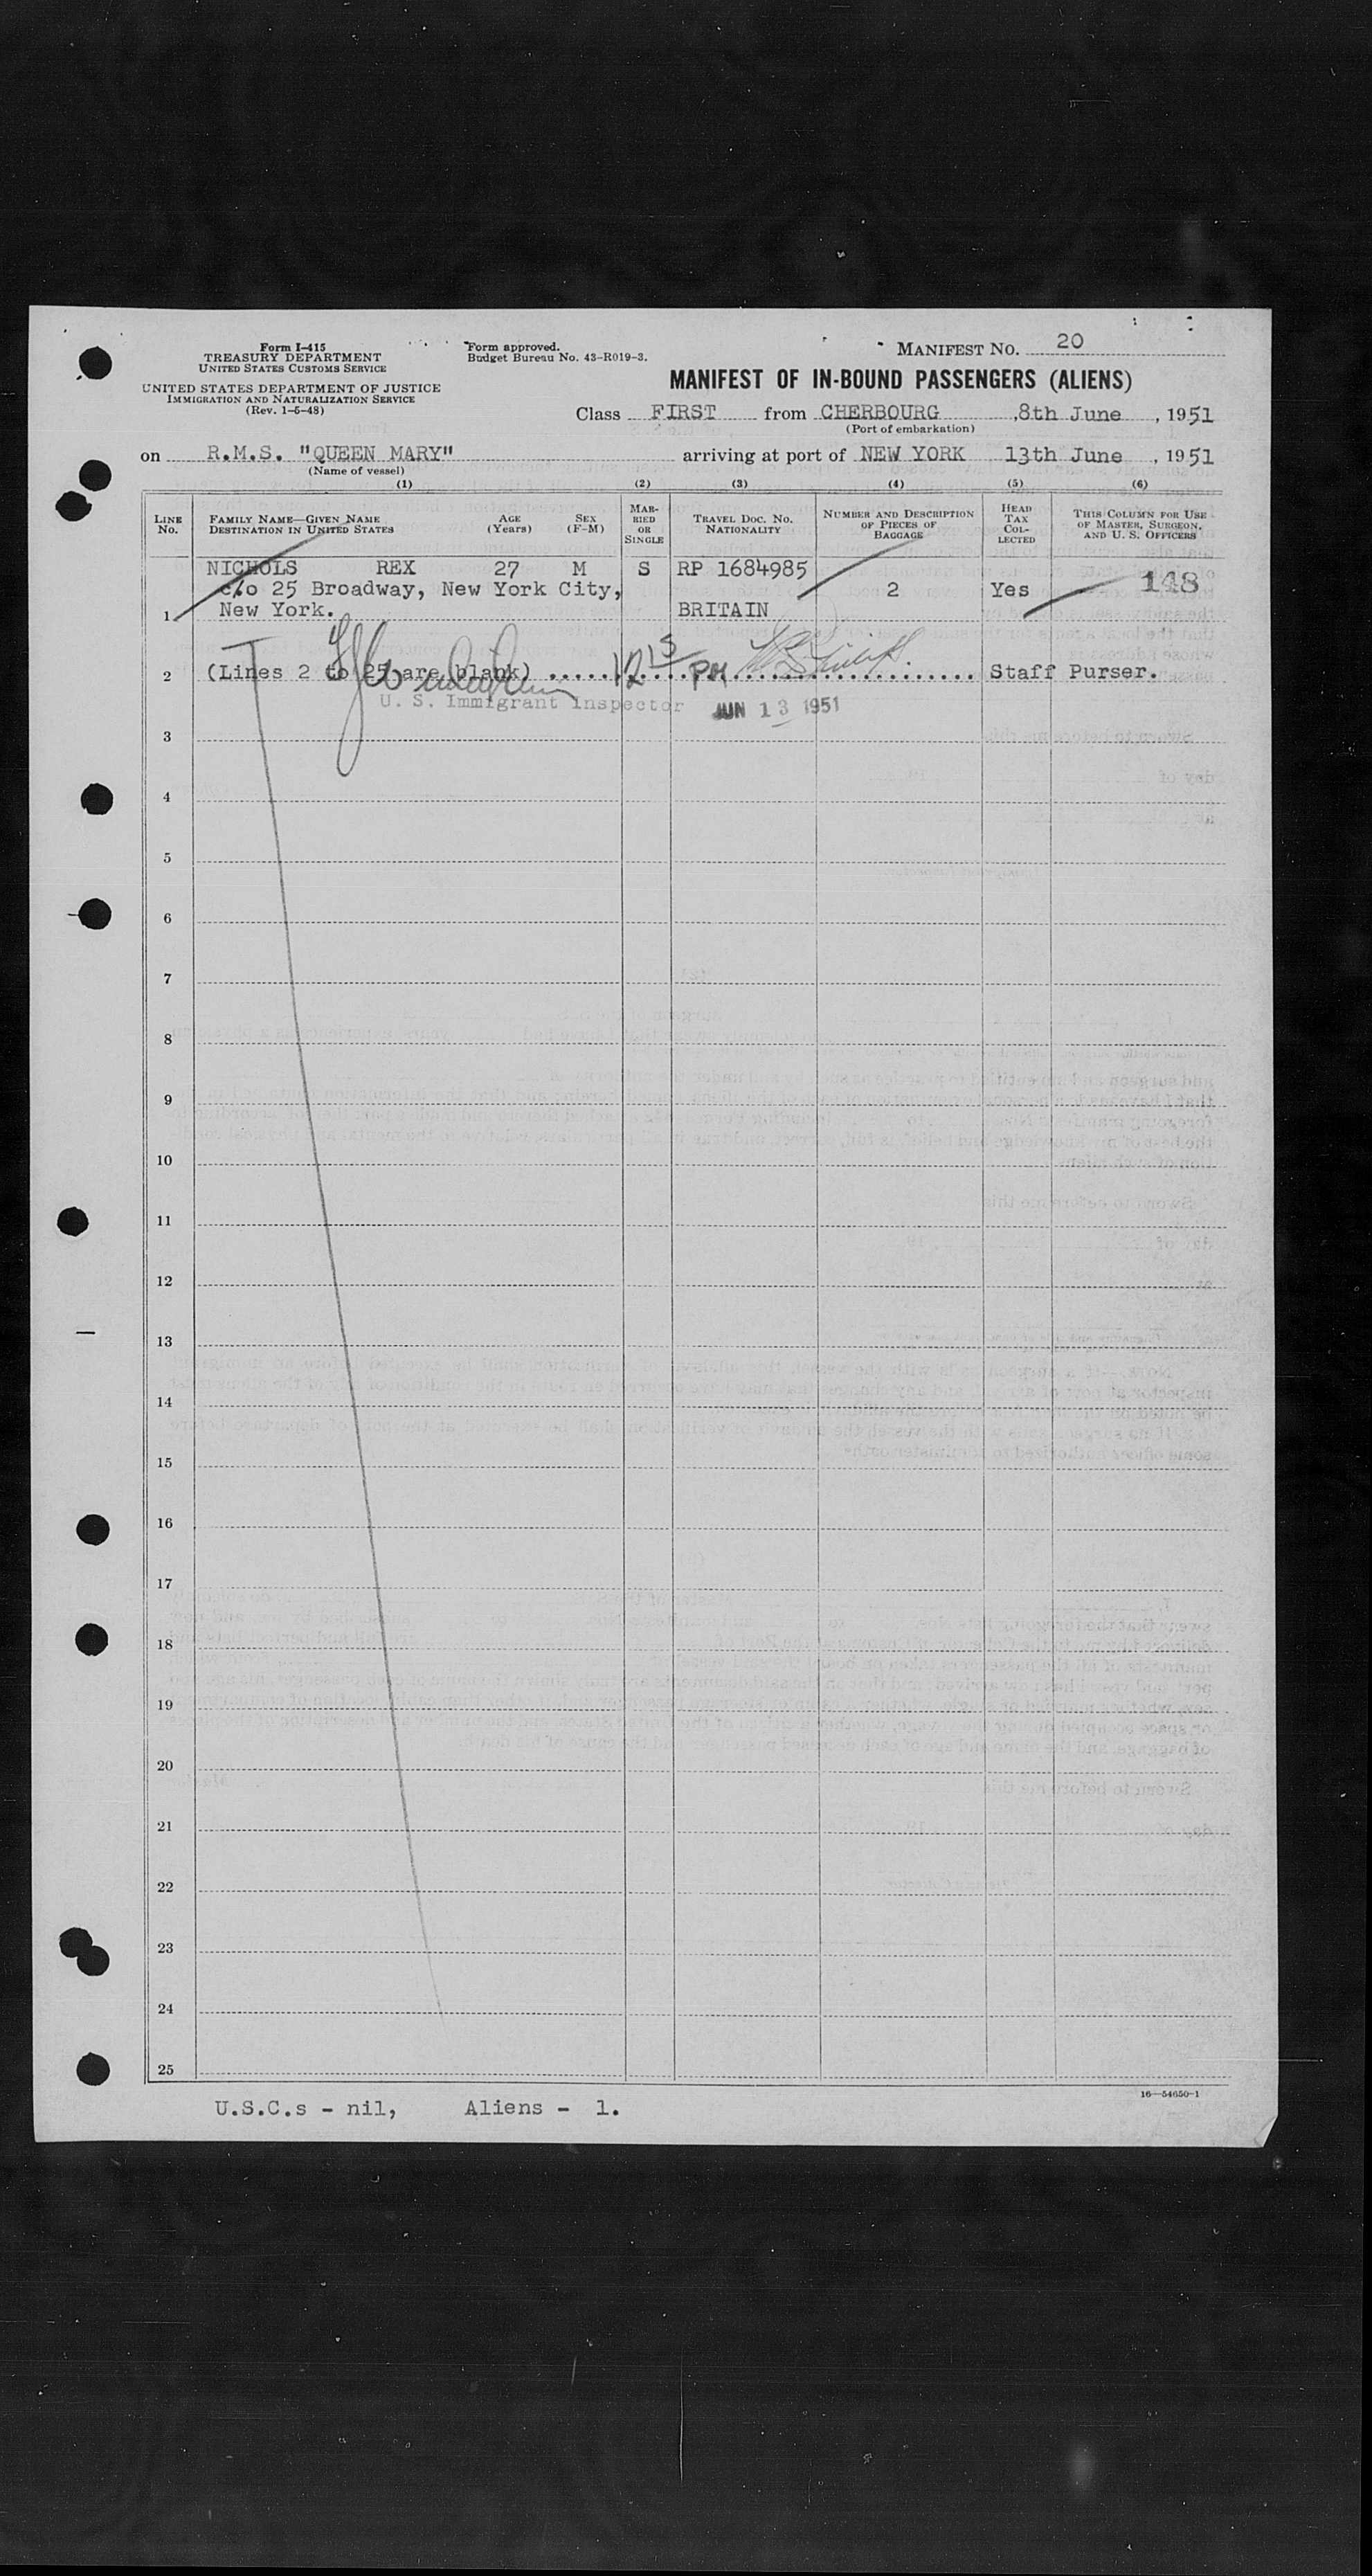 Form I-415
TREASURY DEPARTMENT
UNITED STATES CUSTOMS SERVICE
UNITED STATES DEPARTMENT OF JUSTICE
IMMIGRATION AND NATURALIZATION SERVICE
(Rev. 1-5-48)
Form approved.
Budget Bureau No. 43-R019-3.
MANIFEST NO. 20
MANIFEST OF IN-BOUND PASSENGERS (ALIENS)
Class FIRST from CHERBOURG, 8th June, 1951
(Port of embarkation)
on R.M.S. "QUEEN MARY" arriving at port of NEW YORK 13th June, 1951
(Name of vessel)
(1) (2) (3) (4) (5) (6)
LINE No. FAMILY NAME—GIVEN NAME DESTINATION IN UNITED STATES AGE (Years) SEX (F-M) MARRIED OR SINGLE TRAVEL DOC. NO. NATIONALITY NUMBER AND DESCRIPTION OF PIECES OF BAGGAGE HEAD TAX COLLECTED THIS COLUMN FOR USE OF MASTER, SURGEON, AND U. S. OFFICERS
NICHOLS REX 27 M S RP 1684985
c/o 25 Broadway, New York City, 2 Yes 148
1 New York. BRITAIN
2 (Lines 2 to 25 are blank) 12 15 PM Staff Purser.
U. S. Immigrant Inspector JUN 13 1951
3
4
5
6
7
8
9
10
11
12
13
14
15
16
17
18
19
20
21
22
23
24
25
16—54650-1
U.S.C.s - nil, Aliens - 1.